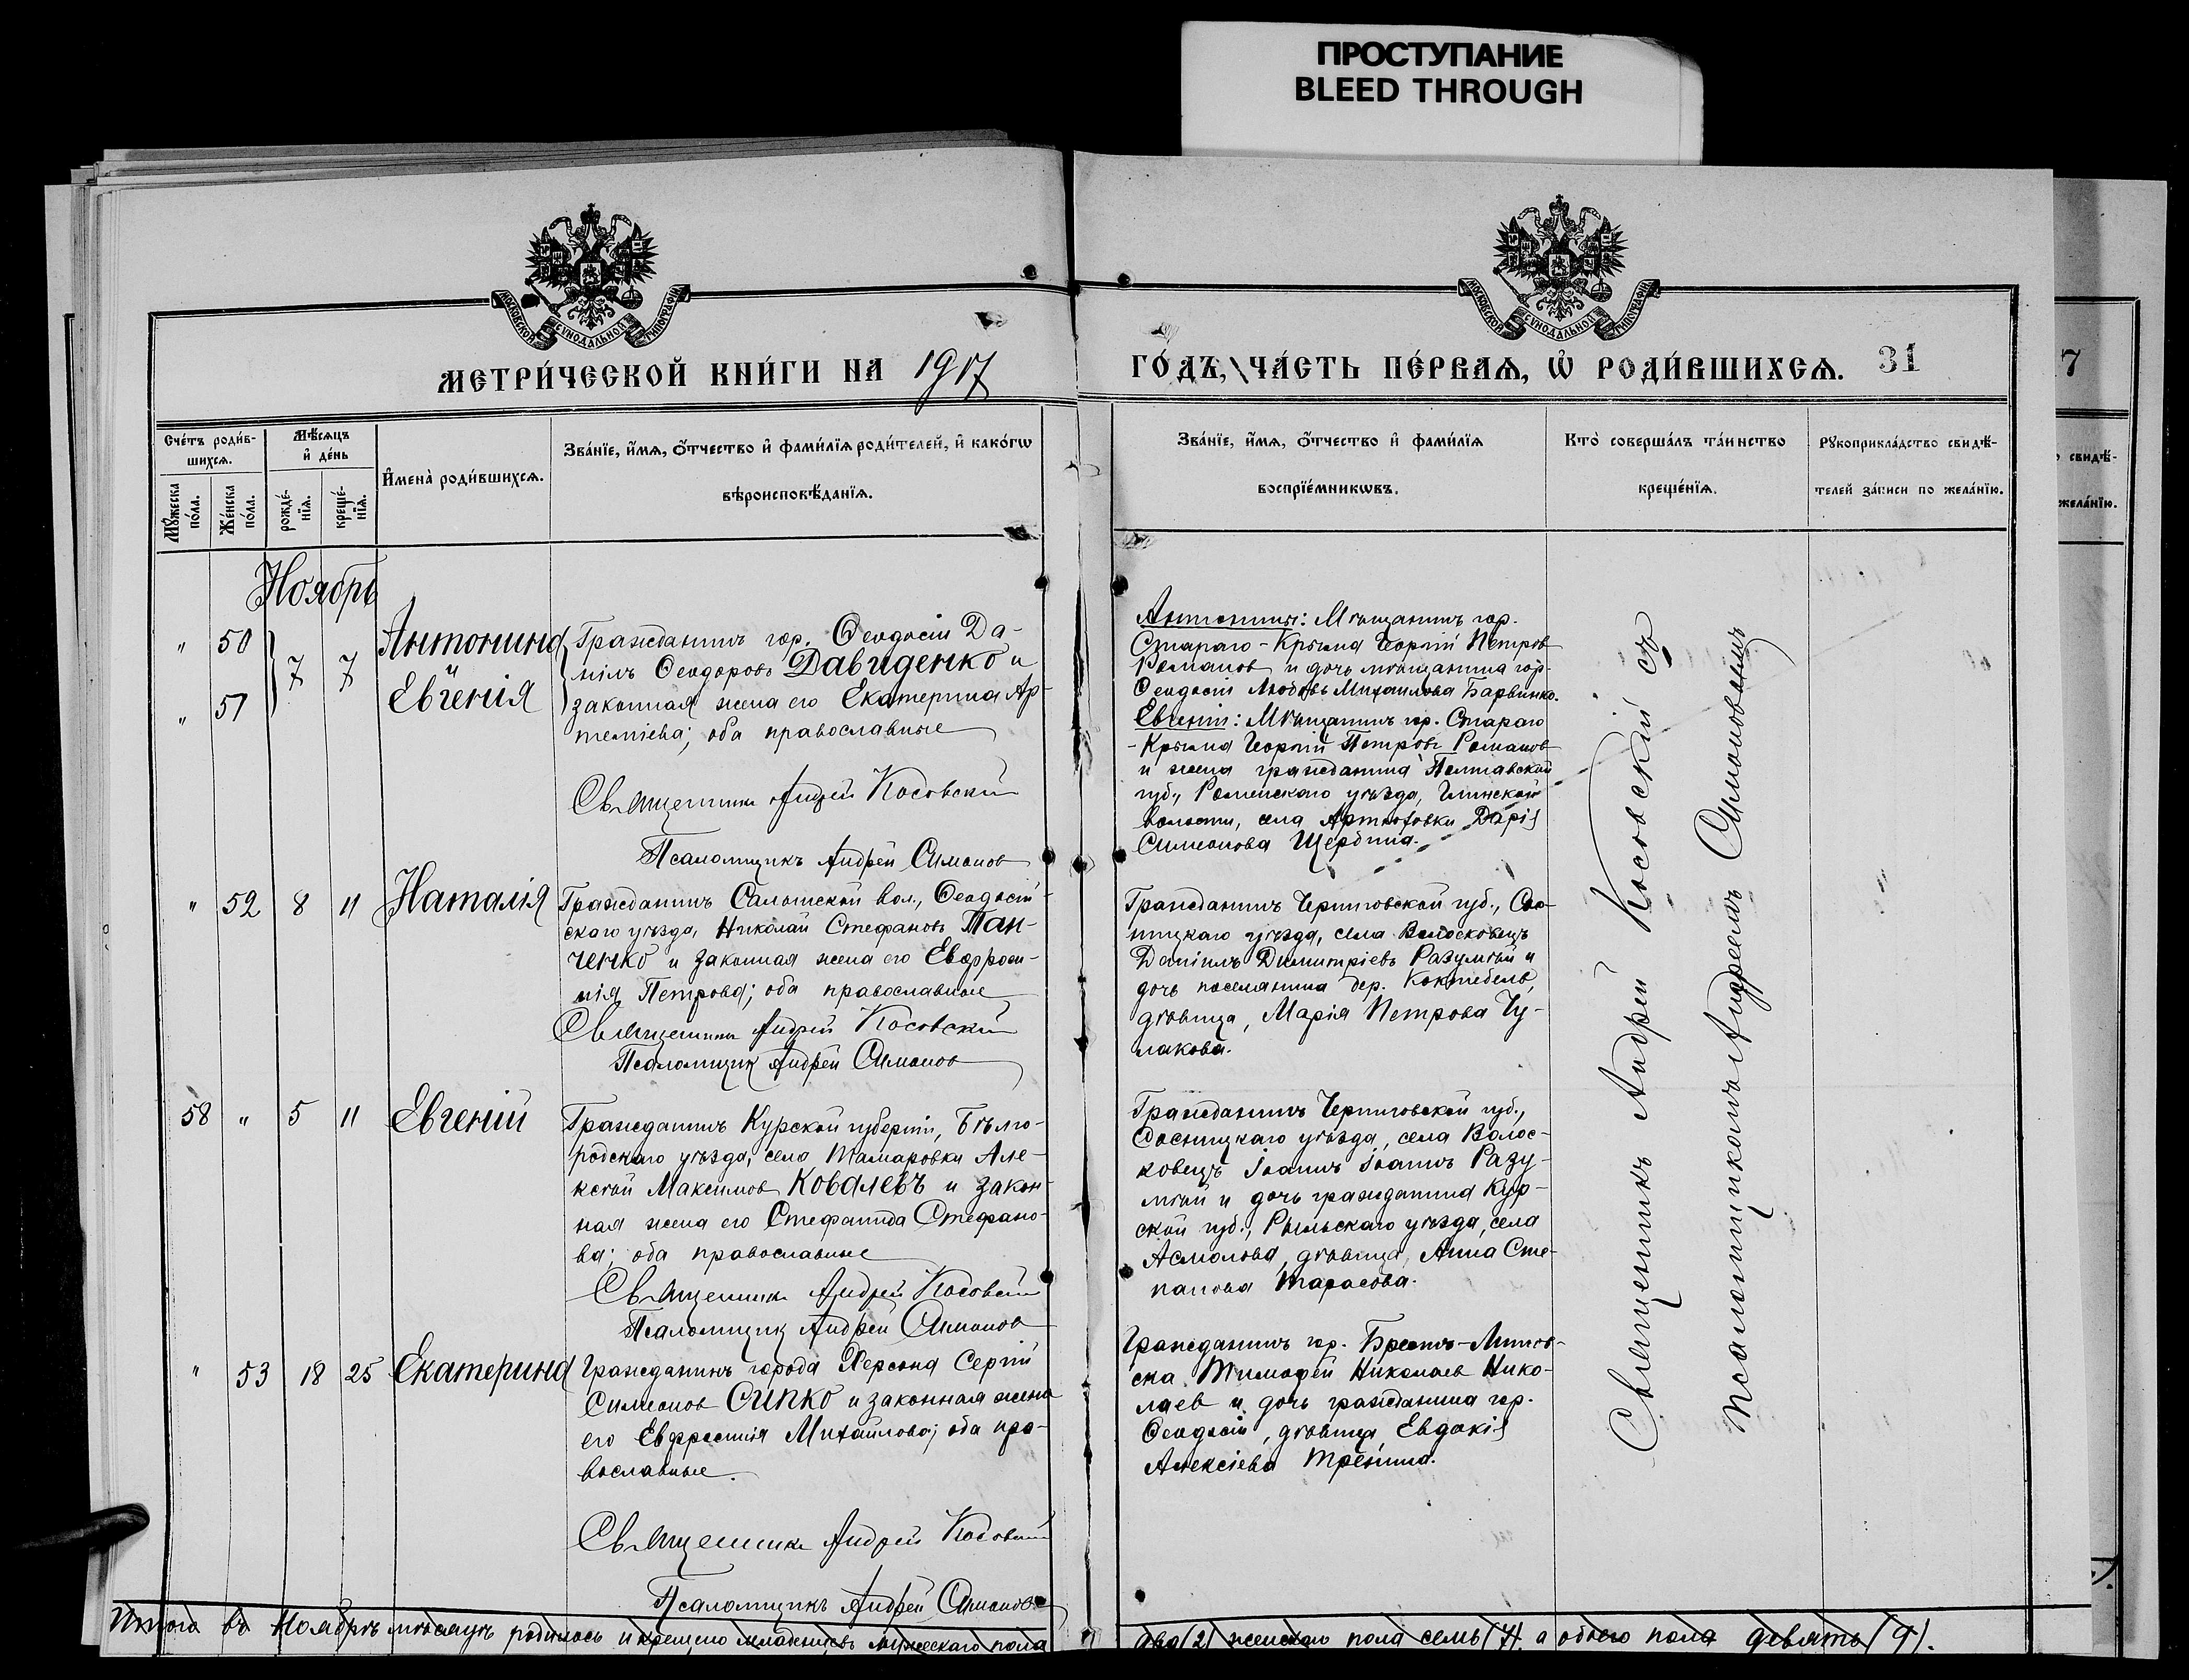 ПРОСТУПАНИЕ
BLEED THROUGH
МОСКОВСКОЙ СѴНОДАЛЬНОЙ ТИПОГРАФІИ
МОСКОВСКОЙ СѴНОДАЛЬНОЙ ТИПОГРАФІИ
МЕТРИ́ЧЕСКОЙ КНИ́ГИ НА 1917
ГО́ДЪ, ЧА́СТЬ ПЕ́РВАѦ, Ѡ҆ РОДИ́ВШИХСѦ. 31
7
Сче́тъ роди́в-
шихсѧ.
Мꙋ́жеска
по́ла.
Же́нска
по́ла.
Мѣ́сѧцъ
и҆ де́нь
рожде́-
нїѧ.
креще́-
нїѧ.
И҆мена̀ роди́вшихсѧ.
Зва́нїе, и҆́мѧ, ѻ҆́тчество и҆ фами́лїѧ роди́телей, и҆ како́гѡ
вѣроисповѣ́данїѧ.
Зва́нїе, и҆́мѧ, ѻ҆́тчество и҆ фами́лїѧ
воспрїе́мникѡвъ.
Кто̀ соверша́лъ та́инство
креще́нїѧ.
Рꙋкоприкла́дство свидѣ́-
телей за́писи по жела́нїю.
свидѣ́-
жела́нїю.
Ноябрь
" 50
" 51
7 7
Антонина
и
Евгенія
Гражданинъ гор. Ѳеодосіи Да-
ніилъ Ѳеодоровъ Давиденко и
законная жена его Екатерина Ар-
теміева; оба православные
Священникъ Андрей Косовскій
Псаломщикъ Андрей Симонов
Антонины: Мѣщанинъ гор.
Стараго-Крыма Георгій Петров
Романов и дочь мѣщанина гор.
Ѳеодосіи Любовь Михаилова Барвинко.
Евгеніи: Мѣщанинъ гор. Стараго
-Крыма Георгій Петровъ Романов
и жена гражданина Полтавской
губ., Роменскаго уѣзда, Глинской
волости, села Артюховки Дарія
Симеонова Щербина.
" 52 8 11 Наталія
Гражданинъ Салынской вол., Ѳеодосій-
скаго уѣзда, Николай Стефановъ Пан-
ченко и законная жена его Евфроси-
нія Петрова; оба православные
Священникъ Андрей Косовскій
Псаломщик Андрей Симонов
Гражданинъ Черниговской губ., Сос-
ницкаго уѣзда, села Волосковецъ
Даніилъ Димитріевъ Разумный и
дочь поселянина дер. Коктебель,
дѣвица, Марія Петрова Чу-
лакова.
58 " 5 11 Евгеній
Гражданинъ Курской губерніи, Бѣлго-
родскаго уѣзда, села Тамаровки Але-
ксѣй Максимов Ковалевъ и закон-
ная жена его Стефанида Стефано-
ва; оба православные
Священникъ Андрей Косовскій
Псаломщик Андрей Симонов
Гражданинъ Черниговской губ.,
Сосницкаго уѣзда, села Волос-
ковецъ Іоаннъ Іоаннъ Разу-
мный и дочь гражданина Кур-
ской губ., Рыльскаго уѣзда, села
Асмолова, дѣвица, Анна Сте-
панова Тарасова.
" 53 18 25 Екатерина
Гражданинъ города Херсона Сергій
Симеонов Сипко и законная жена
его Евфросинія Михаилова; оба пра-
вославные.
Священникъ Андрей Косовскій
Псаломщикъ Андрей Симонов
Гражданинъ гор. Брестъ-Литов-
ска Тимофей Николаев Нико-
лаев и дочь гражданина гор.
Ѳеодосіи, дѣвица, Евдокія
Алексіева
Священникъ Андрей Косовскій съ
Псаломщикомъ Андреемъ Симоновымъ
Итого въ Ноябрѣ мѣсяцѣ родилось и крещено младенцевъ мужескаго пола
два (2) женскаго пола семь (7), а обоего пола девять (9).